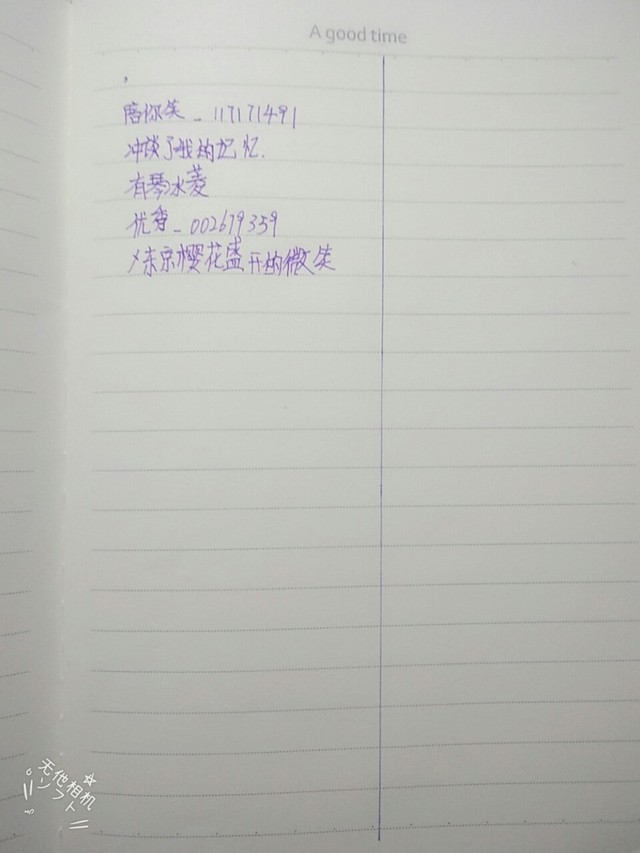 A good time
,
陪你笑_117171491
冲淡了我的记忆.
有琴水菱
优香_002679359
メ东京樱花盛开的微笑
无他相机
ソフト